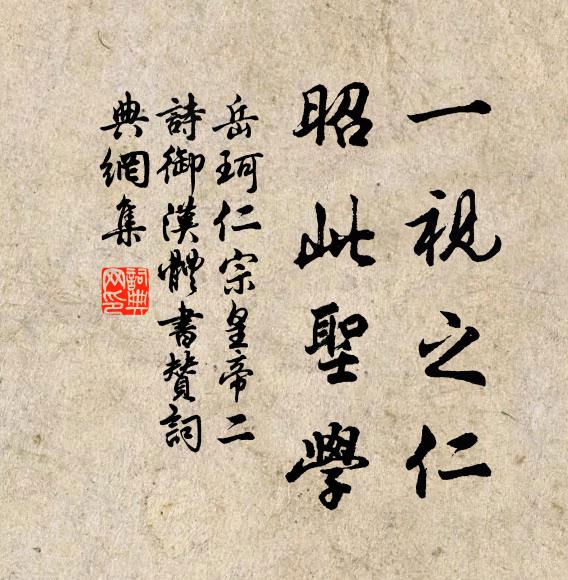 一視之仁
昭此聖學
岳珂仁宗皇帝二
詩御漢體書贊詞
典網集
詞典網印